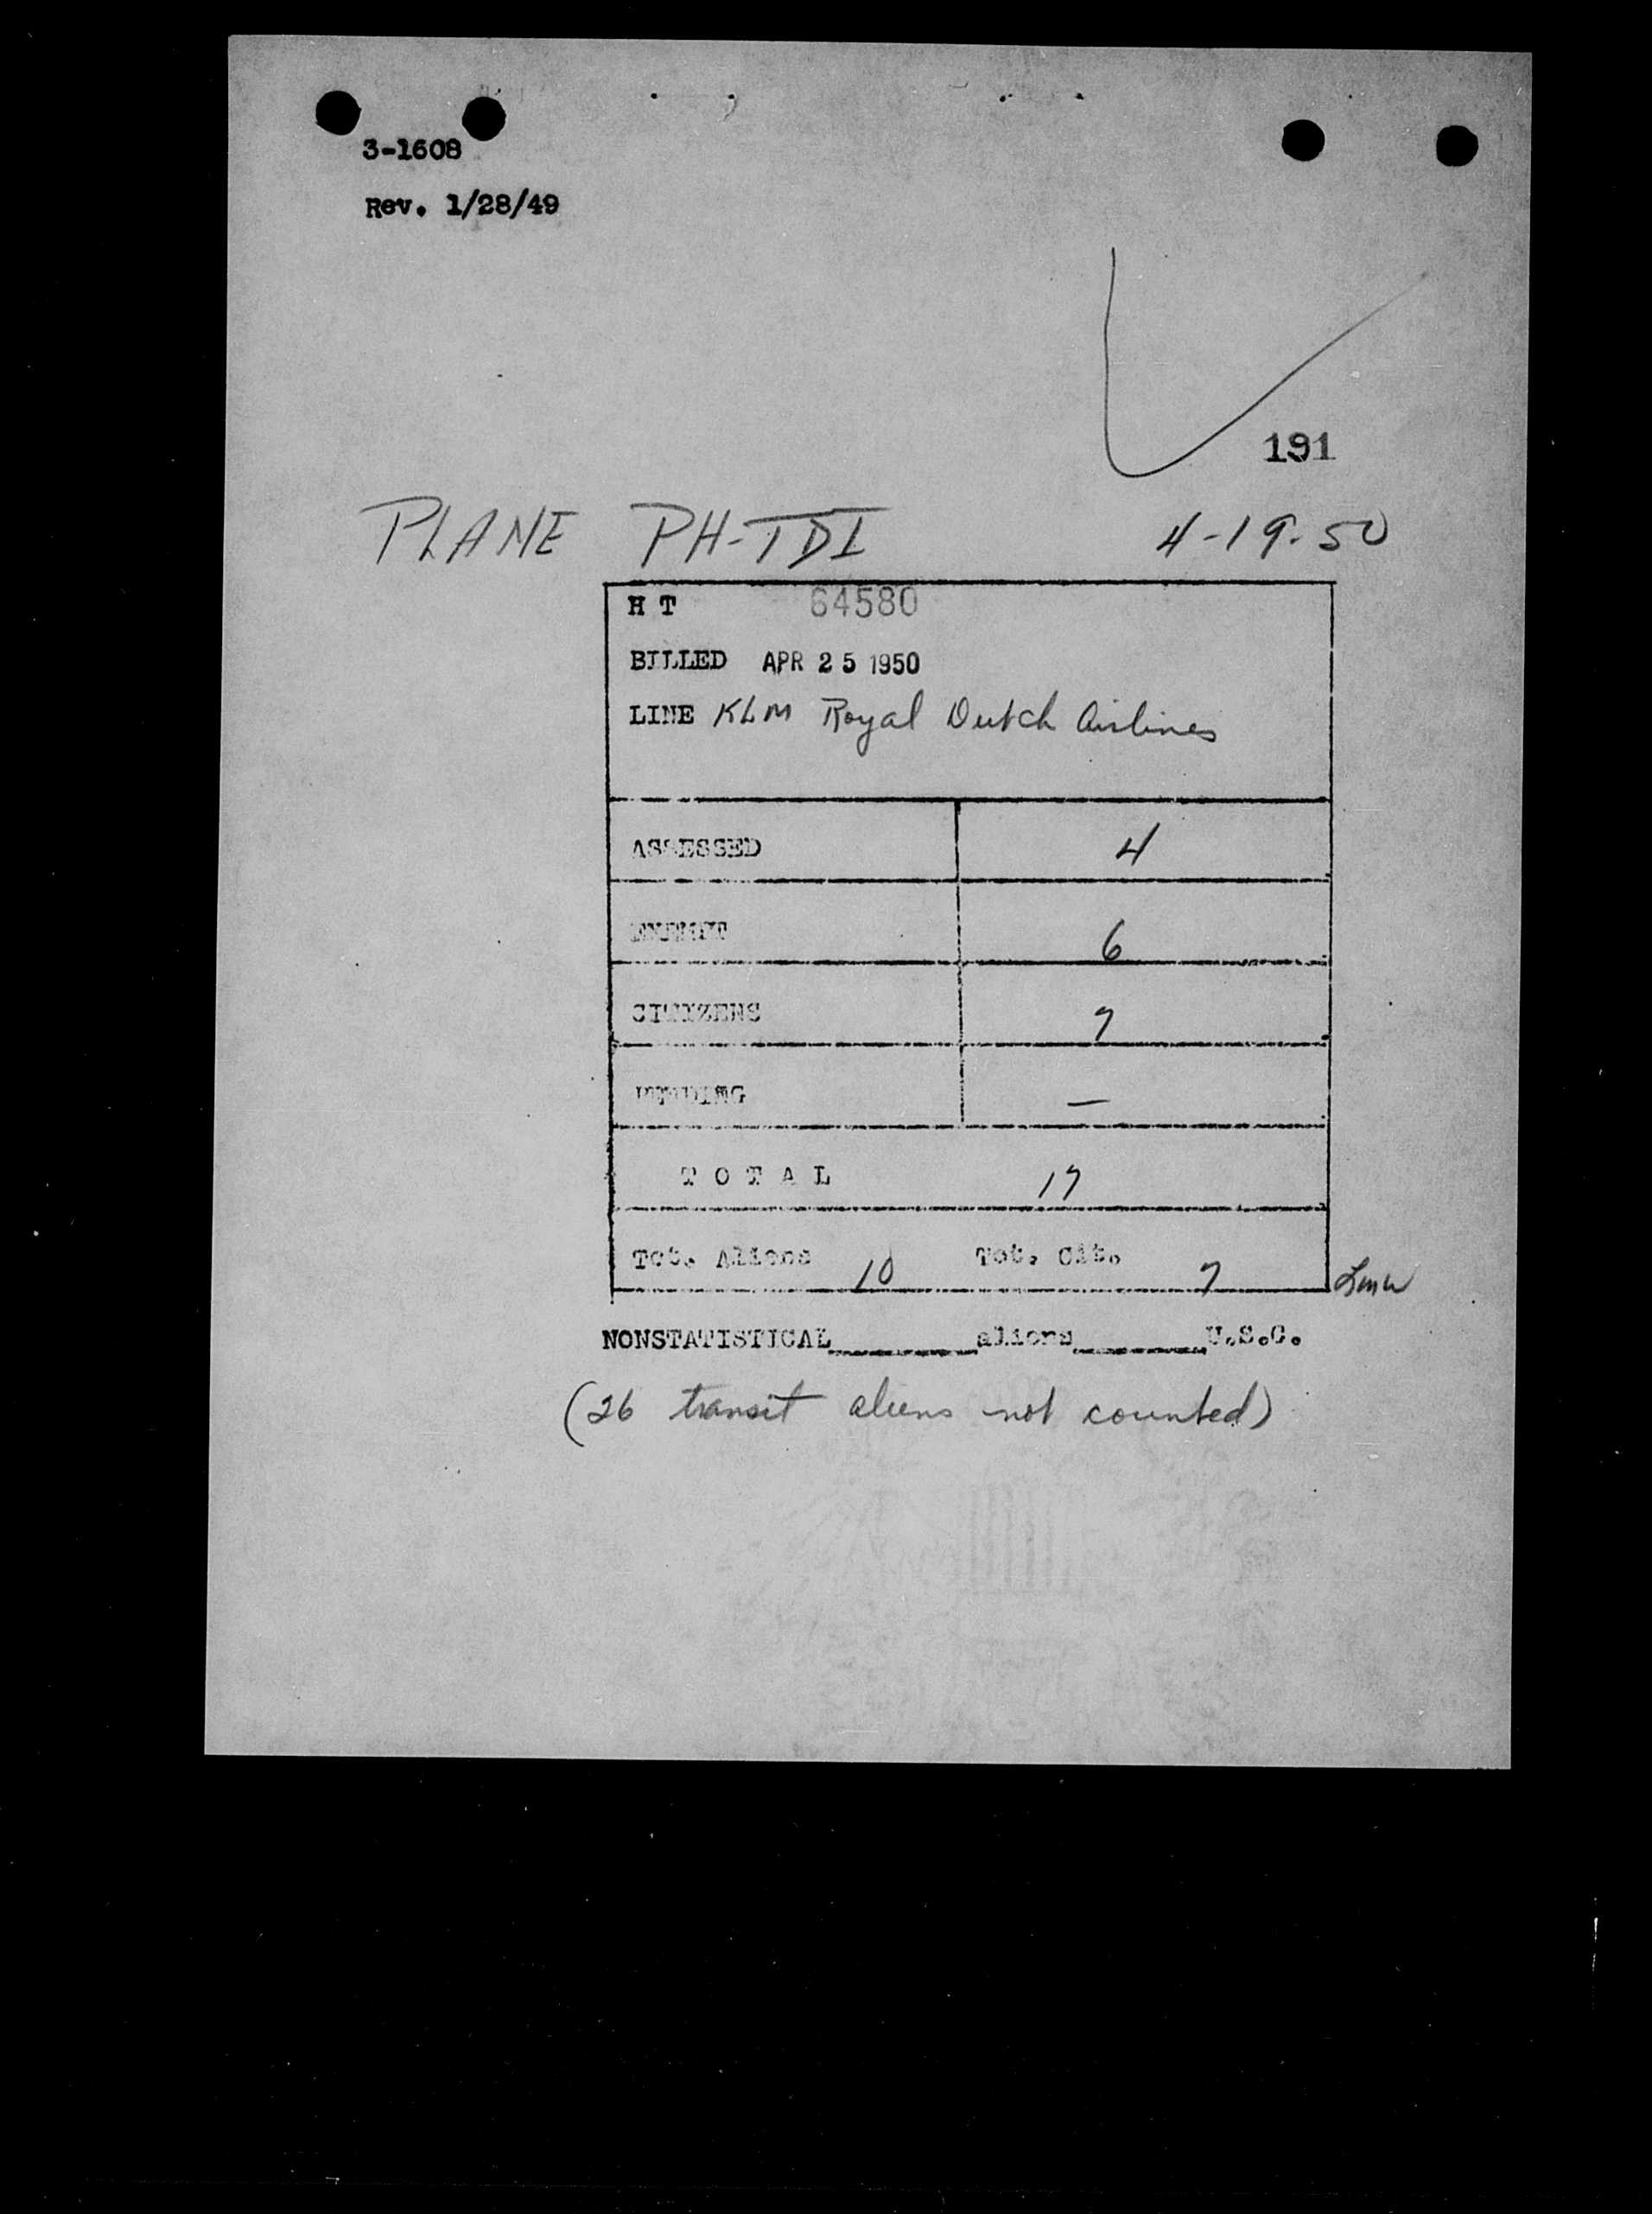 3-1608
Rev. 1/28/49
191
PLANE PH-TDI 4-19-50
H T 64580
BILLED APR 25 1950
LINE KLM Royal Dutch Airlines
ASSESSED 4
EXEMPT 6
CITIZENS 7
PENDING —
TOTAL 17
Tot. Aliens 10 Tot. Cit. 7 Lmw
NONSTATISTICAL________aliens________U.S.C.
(26 transit aliens not counted)